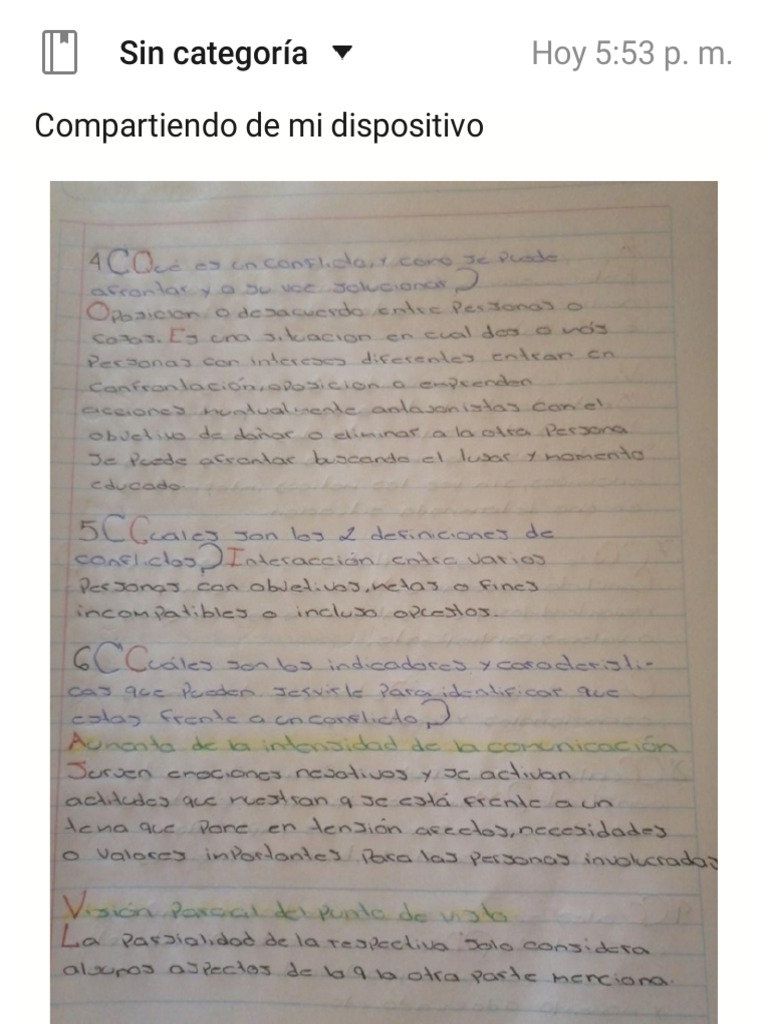 Sin categoría
Hoy 5:53 p. m.
Compartiendo de mi dispositivo
4 ¿Qué es un conflicto, y como se puede
afrontar y a su vez solucionar?
Oposicion o desacuerdo entre Personas o
cosas. Es una situacion en cual dos o más
Personas con intereses diferentes entran en
confrontación, oposicion o emprenden
acciones nuntualmente antagonistas con el
objetivo de dañar o eliminar a la otra Persona
Se Puede afrontar buscando el lugar y momento
educado.
5 ¿Cuales son los 2 definiciones de
conflictos? Interacción entre varios
Personas con objetivos, metas o fines
incompatibles o incluso opuestos.
6 ¿Cuáles son los indicadores y caracteristi-
cas que Pueden servirle Para identificar que
estas frente a un conflicto?
Aumenta de la intensidad de la comunicación
Surgen emociones negativos y se activan
actitudes que muestran q se está frente a un
tema que Pone en tensión afectos, necesidades
o valores importantes Para las Personas involucradas
Visión Parcial del Punto de vista
La Parsialidad de la respectiva solo considera
algunos aspectos de lo q la otra parte menciona.